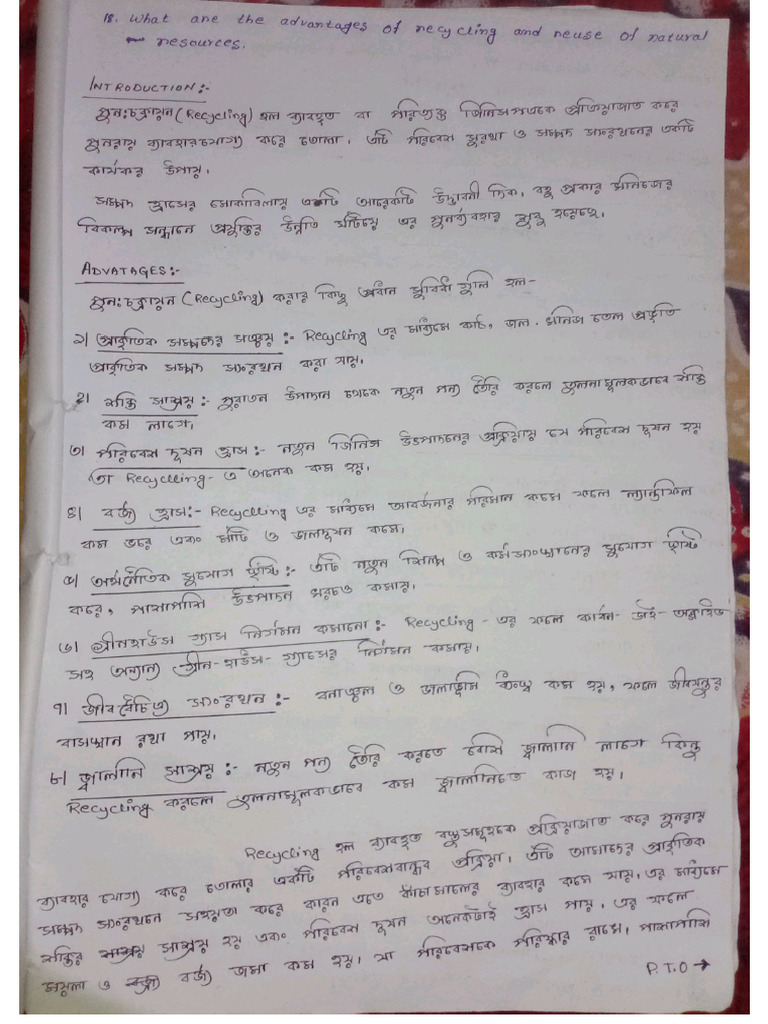 18. What are the advantages of recycling and reuse of natural
resources.
INTRODUCTION:-
পুনঃচক্রায়ন (Recycling) হল ব্যবহৃত বা পরিত্যক্ত জিনিসপত্রকে প্রক্রিয়াজাত করে
পুনরায় ব্যবহারযোগ্য করে তোলা। এটি পরিবেশ সুরক্ষা ও সম্পদ সংরক্ষনের একটি
কার্যকর উপায়।
সম্পদ হ্রাসের মোকাবিলায় এটি আরেকটি উদ্ভাবনী দিক, বহু প্রকার খনিজের
বিকল্প সন্ধানে প্রযুক্তির উন্নতি ঘটিয়ে এর পুনর্ব্যবহার শুরু হয়েছে।
ADVATAGES:-
পুনঃচক্রায়ন (Recycling) করার কিছু প্রধান সুবিধা গুলি হল-
১। প্রাকৃতিক সম্পদের সঞ্চয় :- Recycling এর মাধ্যমে কাঠ, জল, খনিজ তেল প্রভৃতি
প্রাকৃতিক সম্পদ সংরক্ষন করা যায়।
২। শক্তি সাশ্রয় :- পুরাতন উপাদান থেকে নতুন পন্য তৈরি করলে তুলনামূলকভাবে শক্তি
কম লাগে।
৩। পরিবেশ দূষন হ্রাস :- নতুন জিনিস উৎপাদনের প্রক্রিয়ায় যে পরিবেশ দূষন হয়
তা Recyclling- এ অনেক কম হয়।
৪। বর্জ্য হ্রাস:- Recyclling এর মাধ্যমে আবর্জনার পরিমান কমে ফলে ল্যান্ডফিল
কম ভরে এবং মাটি ও জলদূষন কমে।
৫। অর্থনৈতিক সুযোগ সৃষ্টি :- এটি নতুন শিল্প ও কর্মসংস্থানের সুযোগ সৃষ্টি
করে, পাশাপাশি উৎপাদন খরচও কমায়।
৬। গ্রীনহাউস গ্যাস নির্গমন কমানো :- Recycling - এর ফলে কার্বন- ডাই- অক্সাইড
সহ অন্যান্য গ্রীন-হাউস- গ্যাসের নির্গমন কমায়।
৭। জীব বৈচিত্র্য সংরক্ষন :- বনাঞ্চল ও জলাভূমি কম হয়, ফলে জীবজন্তুর
বাসস্থান রক্ষা পায়।
৮। জ্বালানি সাশ্রয় :- নতুন পন্য তৈরি করতে বেশি জ্বালানি লাগে কিন্তু
Recycling করলে তুলনামূলকভাবে কম জ্বালানিতে কাজ হয়।
Recycling হল ব্যবহৃত বস্তুসমূহকে প্রক্রিয়াজাত করে পুনরায়
ব্যবহার যোগ্য করে তোলার একটি পরিবেশবান্ধব প্রক্রিয়া। এটি আমাদের প্রাকৃতিক
সম্পদ সংরক্ষনে সহয়তা করে কারন এতে কাঁচামালের ব্যবহার কমে যায়, এর মাধ্যমে
শক্তির সাশ্রয় হয় এবং পরিবেশ দূষন অনেকটাই হ্রাস পায়। এর ফলে
ময়লা ও বর্জ্য জমা কম হয়। যা পরিবেশকে পরিষ্কার রাখে, পাশাপাশি
P.T.O →